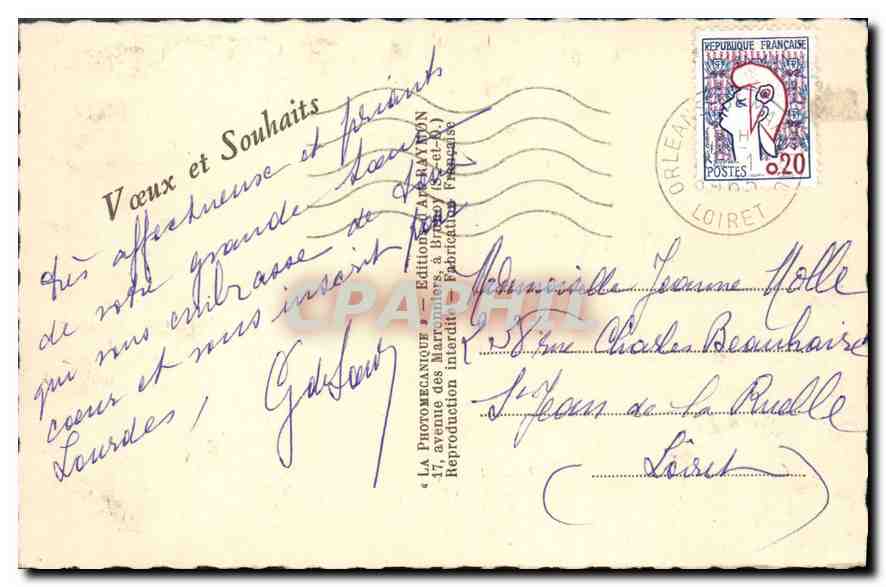 Vœux et Souhaits
très affectueuse et priants
de votre grande sœur
qui vous embrasse de tout
cœur et vous inscrit pour
Lourdes,
« LA PHOTOMECANIQUE » — Editions d'Art RAYMON
17, avenue des Marronniers, à Brunoy (S.-et-O.)
Reproduction interdite — Fabrication Française
REPUBLIQUE FRANÇAISE
POSTES 0.20
ORLEANS
LOIRET
CPAPHIL
Mademoiselle Jeanne Nolle
rue Charles Beauhaire
St Jean de la Ruelle
(Loiret)